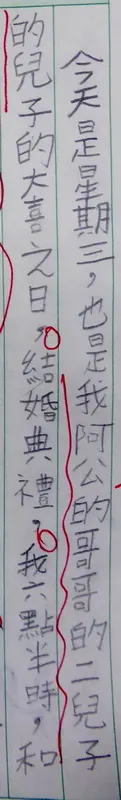 今天是星期三，也是我阿公的哥哥的二兒子
的兒子的大喜之日，結婚典禮，我六點半時，和